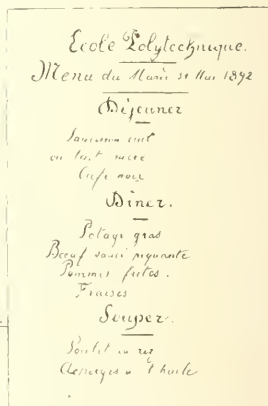 Ecole Polytechnique.
Menu du Mardi 31 Mai 1892
Déjeuner
Saucisson
ou lait sucré
Café noir
Dîner.
Potage gras
Bœuf sauce piquante
Pommes frites.
Fraises
Souper.
Poulet au riz
Asperges à l'huile